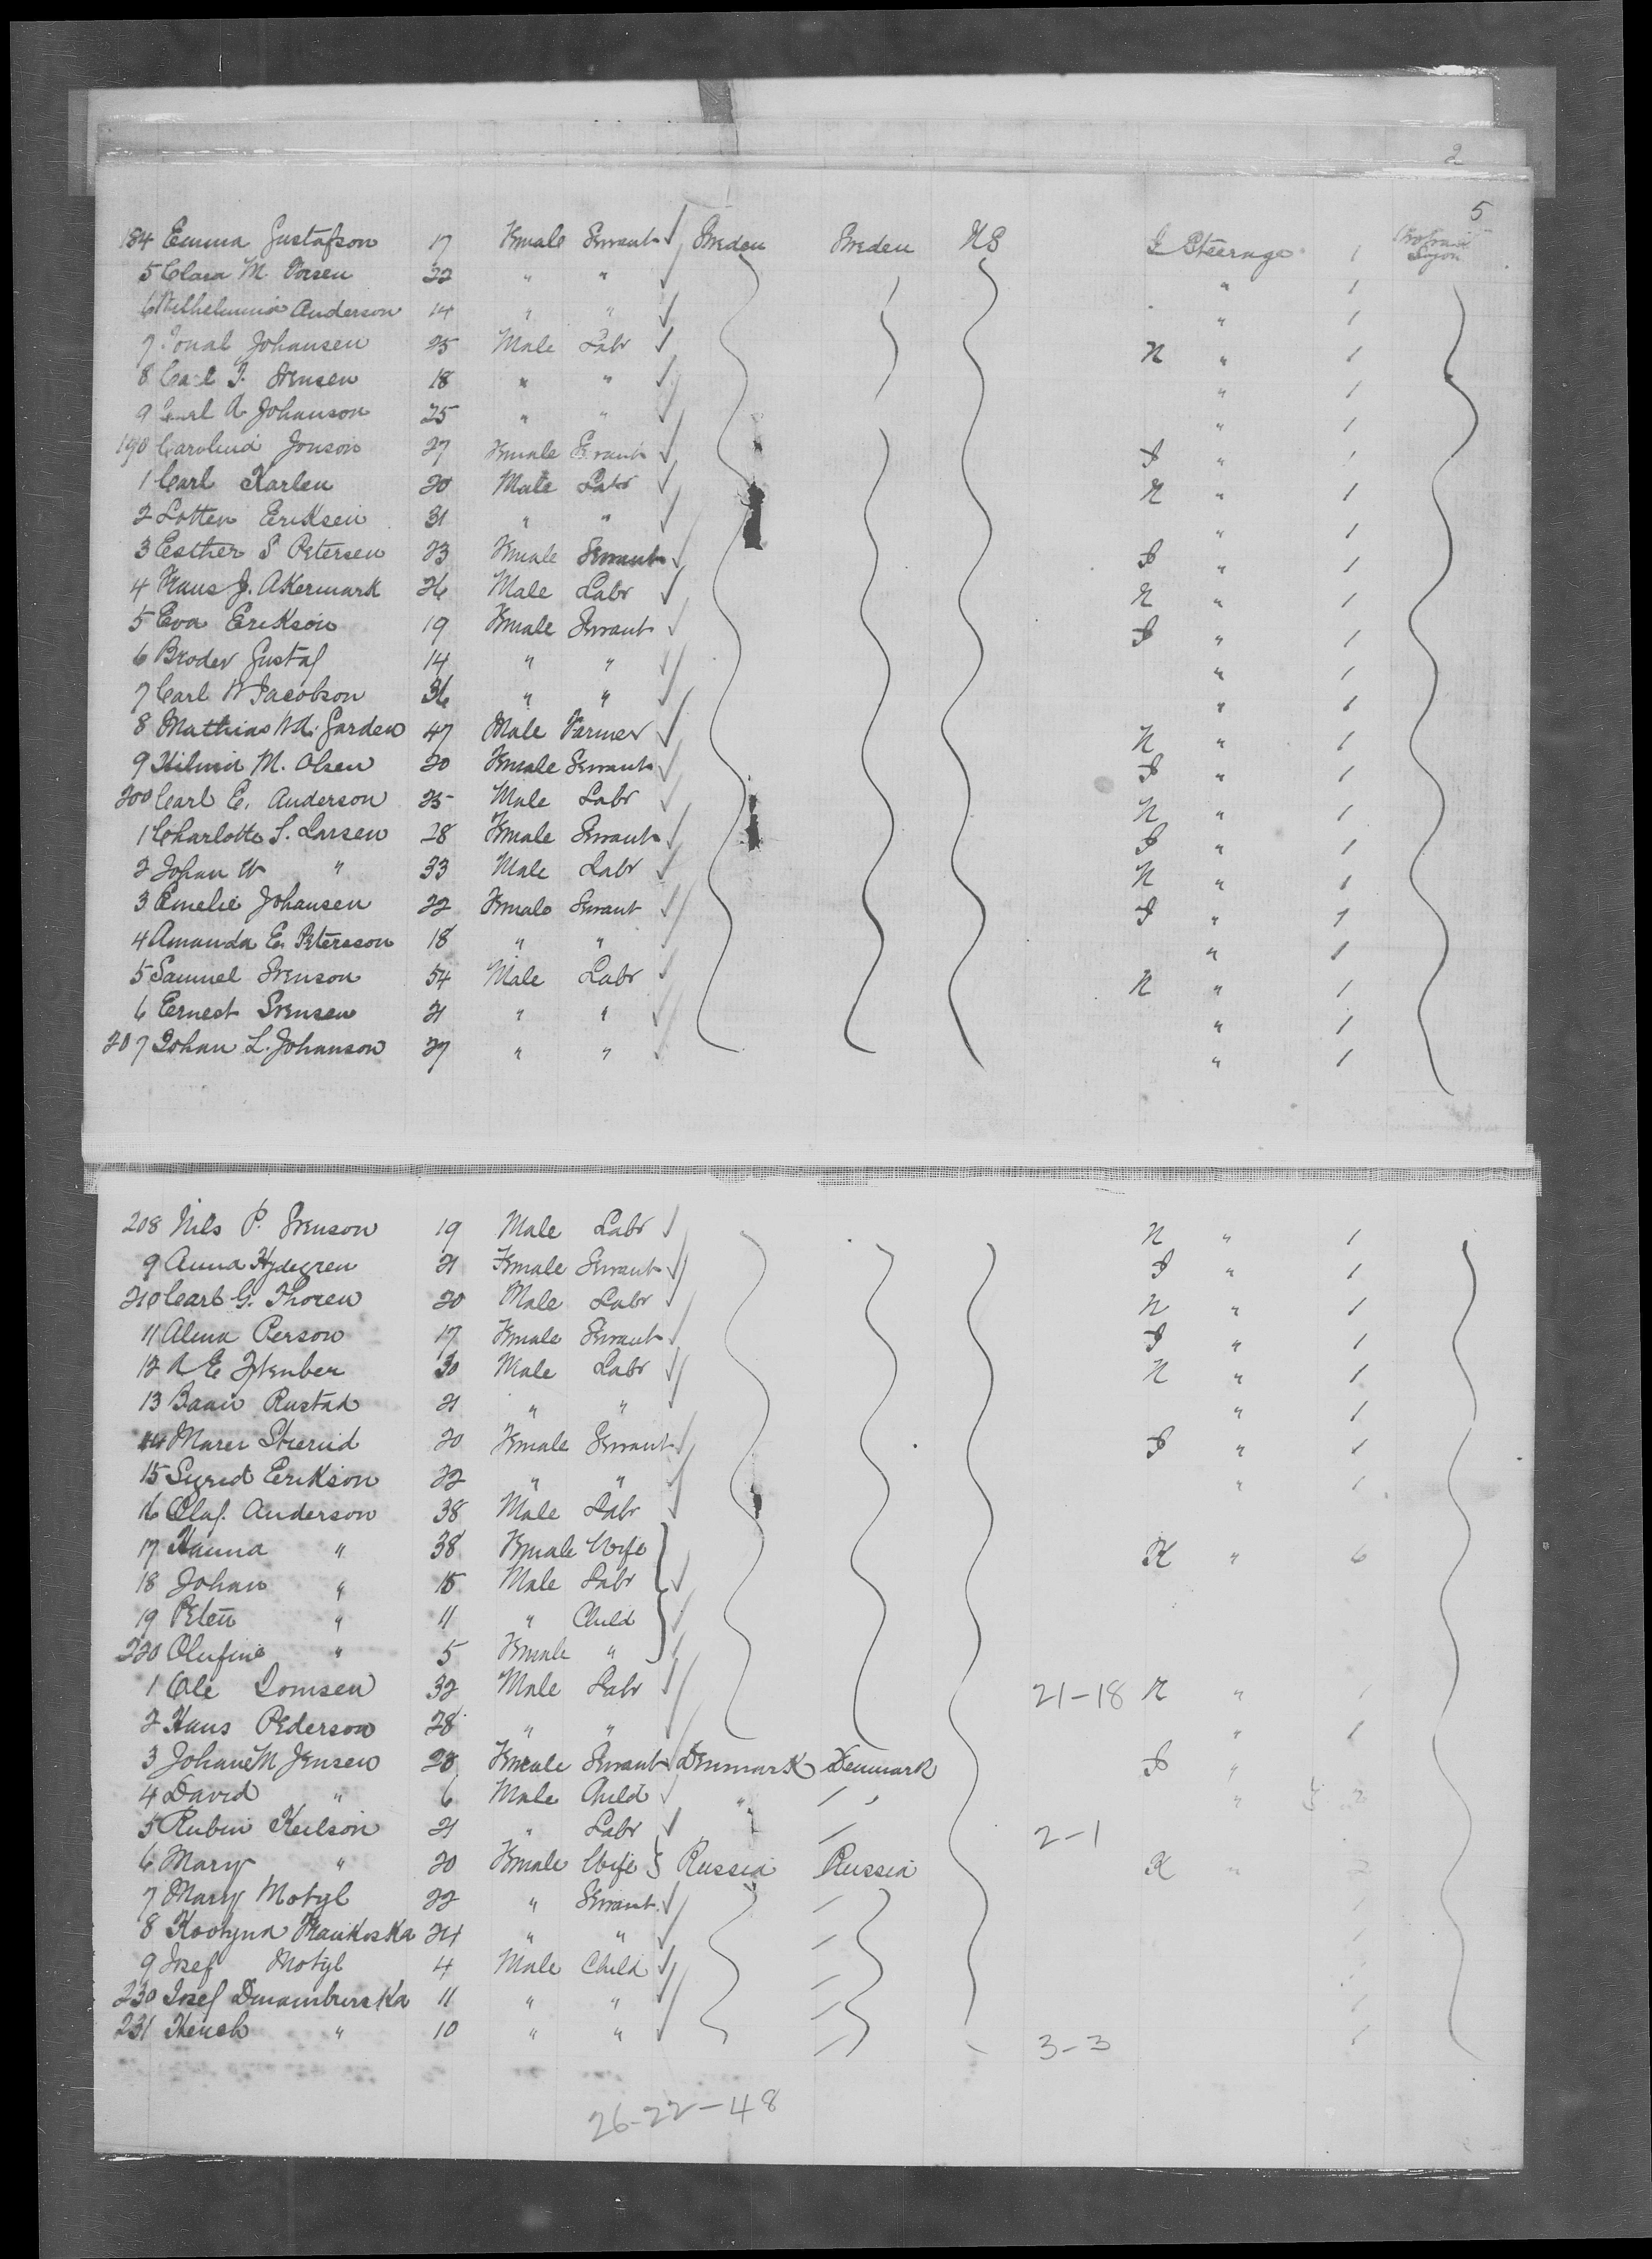 2
5
184 Emma Gustafson 17 Female Servant Sweden Sweden US S Steerage 1
5 Clara M. 22 " " " 1
6 Wilhelmina Anderson 14 " " " 1
7 Johansen 25 Male Labr N " 1
8 Carl Svensen 18 " " " 1
9 Carl A Johanson 25 " " " 1
190 Carolina Jonson 27 Female Servant S " 1
1 Carl Karlen 20 Male Labr N " 1
2 Lotten Eriksen 31 " " " 1
3 Esther S Petersen 23 Female Servant S " 1
4 Frans J. Akermark 26 Male Labr N " 1
5 Eva Erikson 19 Female Servant S " 1
6 Broder Gustaf 14 " " " 1
7 Carl W Jacobson 36 " " " 1
8 Mathias Garden 47 Male Farmer N " 1
9 Hilma M. Olsen 20 Female Servant S " 1
200 Carl E. Anderson 25 Male Labr N " 1
1 Charlotte S. Larsen 28 Female Servant S " 1
2 Johan W " 33 Male Labr N " 1
3 Emelie Johansen 22 Female Servant S " 1
4 Amanda E. Petersson 18 " " " 1
5 Samuel Svenson 54 Male Labr N " 1
6 Ernest Svensen 21 " " " 1
207 Johan L. Johanson 27 " " " 1
208 Nils P. Svenson 19 Male Labr N " 1
9 Anna Hydegren 21 Female Servant S " 1
210 Carl G. Thoren 20 Male Labr N " 1
11 Alma Person 17 Female Servant S " 1
12 A E 30 Male Labr N " 1
13 Rustad 21 " " " 1
14 Maren 20 Female Servant S " 1
15 Sigrid Erikson 22 " " " 1
16 Olaf. Anderson 38 Male Labr
17 Hanna " 38 Female Wife K " 6
18 Johan " 15 Male Labr
19 Peter " 11 " Child
220 Olufine " 5 Female "
1 Ole Lomsen 32 Male Labr 21-18 N " 1
2 Hans Pederson 28 " " " 1
3 Johane M Jensen 28 Female Servant Denmark Denmark S "
4 David " 6 Male Child " " " 2
5 Rubin Keilson 21 " Labr 2-1
6 Mary " 20 Female Wife Russia Russia K " 2
7 Mary Motyl 22 " Servant 1
8 Frankoska 24 " " 1
9 Josef Motyl 4 Male Child
230 Josef 11 " " 1
231 Hersch " 10 " " 3-3 1
26-22-48